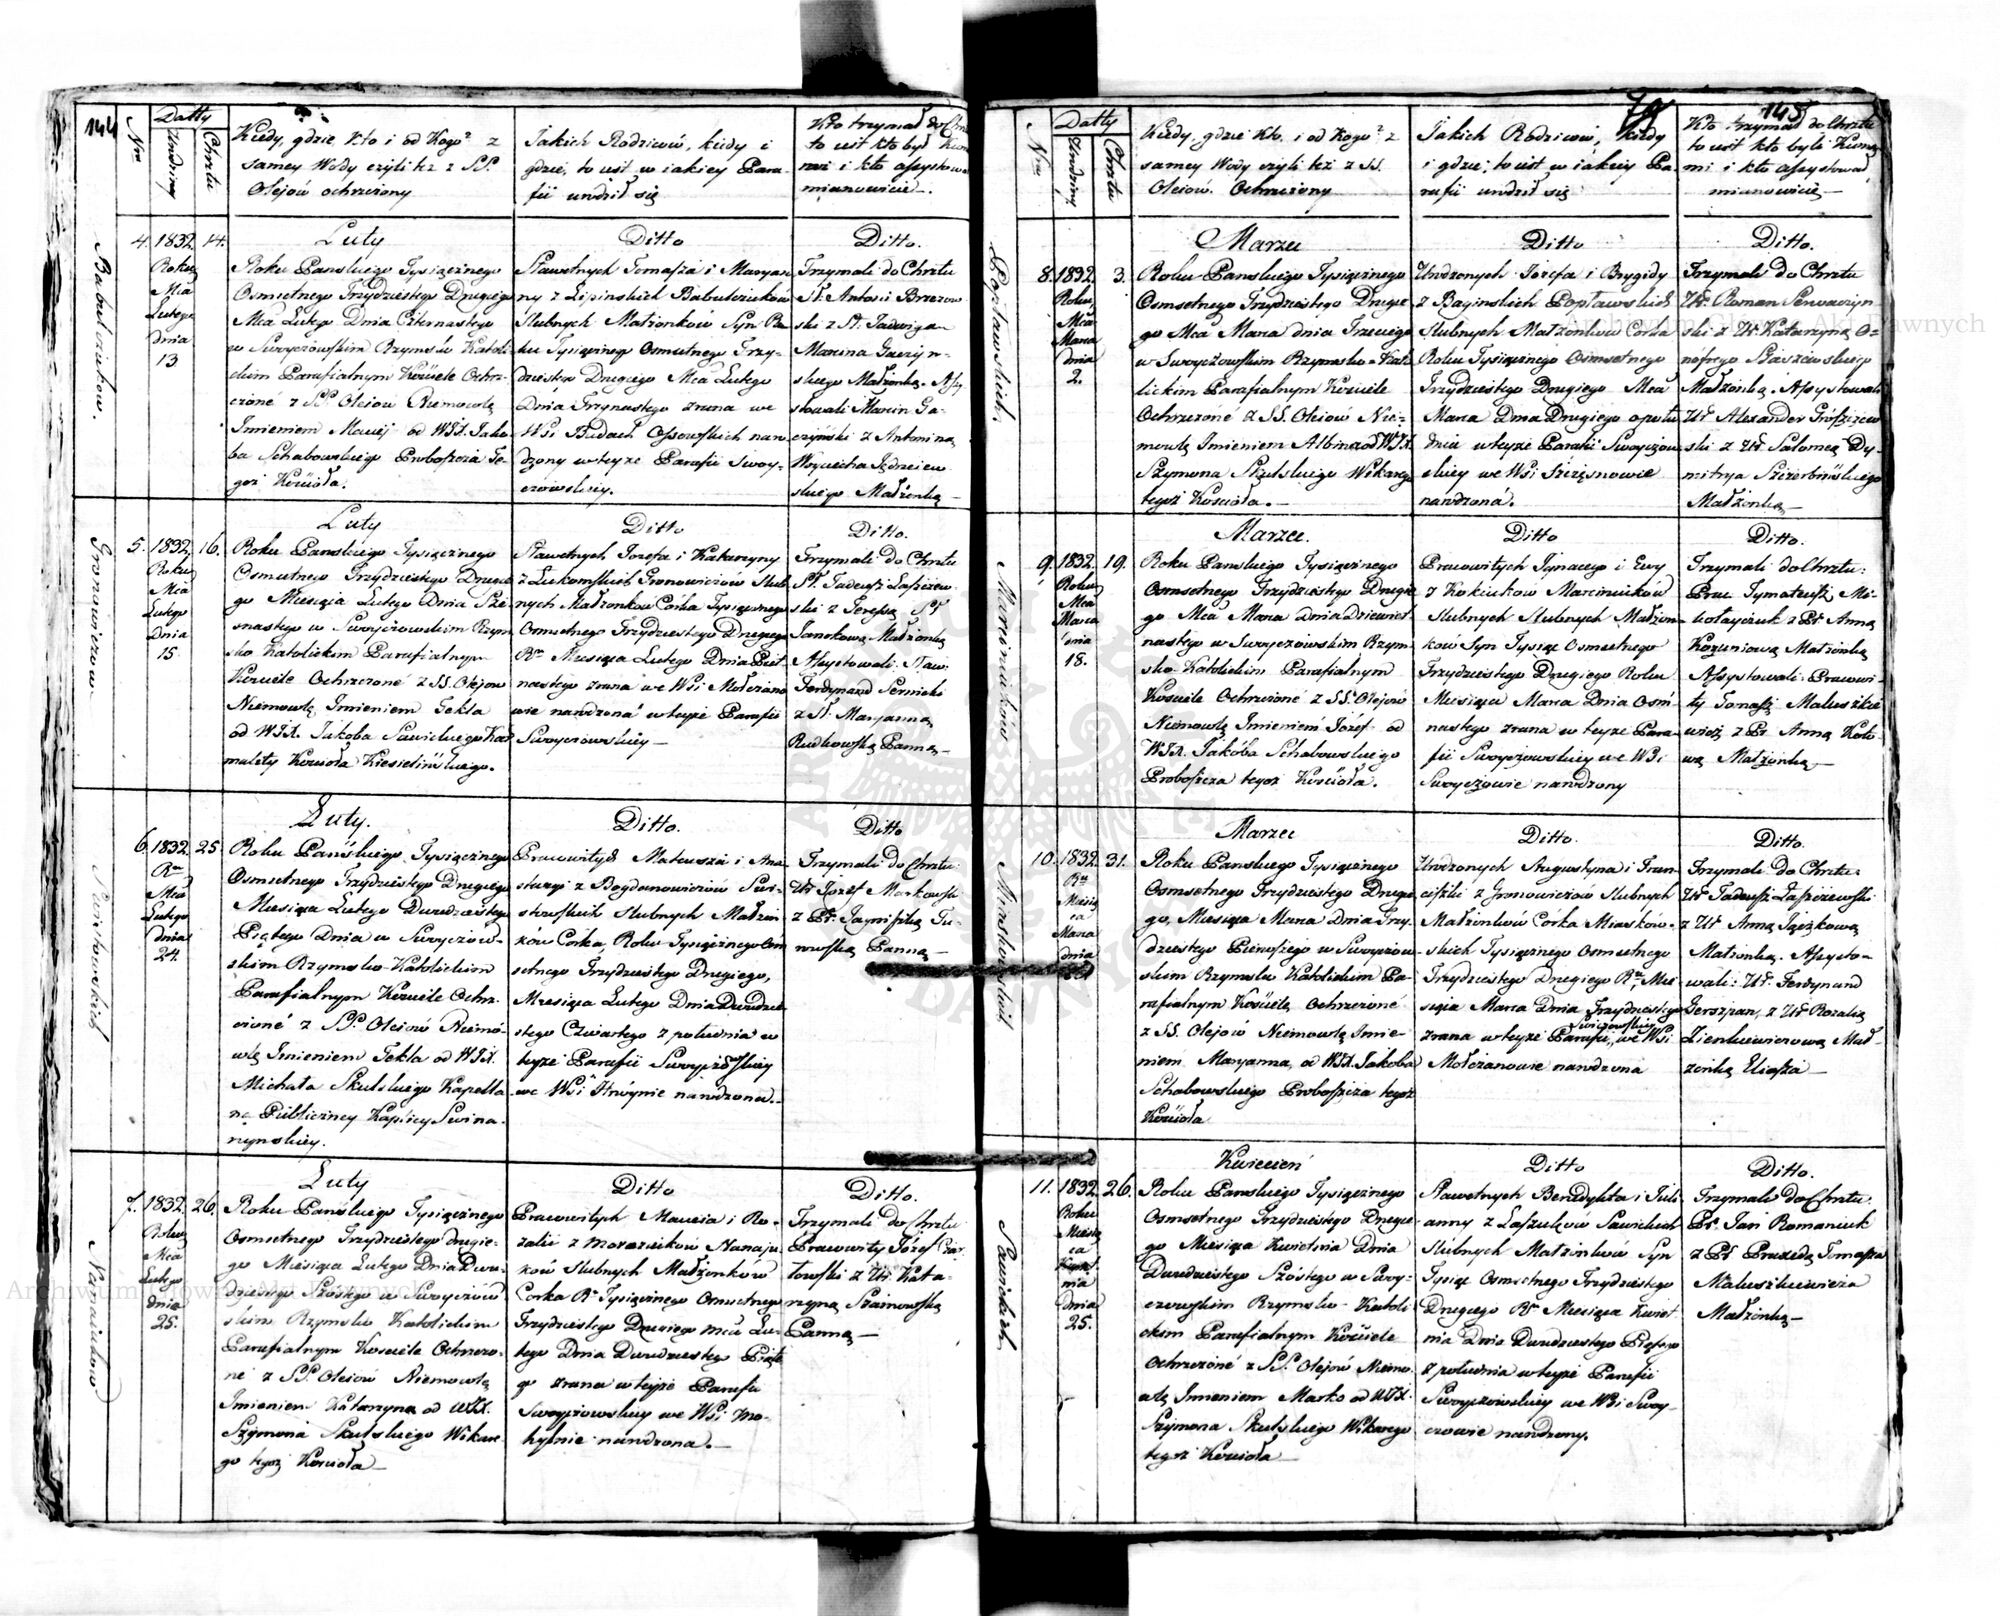 144
Nra
Datty
Urodziny
Chrztu
Kiedy, gdzie, kto i od Kogo? z
samey Wody czyli też z SS.
Olejów ochrzczony
Jakich Rodziców, kiedy i
gdzie, to iest w iakiey Para-
fii urodził się
Kto trzymał do Chrztu
to iest kto był
i kto assystował
mianowicie.
Babulewiczow.
4. 1832 14.
Roku
Mca
Lutego
dnia
13
Luty
Roku Panskiego Tysiącznego
Osmsetnego Trzydziestego Drugiego
Mca Lutego Dnia Czternastego
w Sworyczowskim Rzymsko Katoli-
ckim Parafialnym Kosciele Ochrz-
czone z SS. Olejow Niemowlę
Imieniem Maciej od WJX. Jako-
ba Schabowskiego Proboszcza te-
goż Kościoła.
Ditto
Sławetnych Tomasza i Maryan-
ny z Lipinskich
Slubnych Małzonków Syn Ro-
ku Tysiącznego Osmsetnego Trzy-
dziestego Drugiego Mca Lutego
Dnia Trzynastego zrana we
Wsi Budach Ossowskich naro-
dzony w teyże Parafii Swory-
czowskiey.
Ditto.
Trzymali do Chrztu
St. Antoni Brzezow-
ski z St. Jadwigą
Marcina
Małżonką. Assy-
stowali Marcin Ga-
czyński z Antoniną
Woyciecha Jędrzeiew-
skiego Małżonką
Gronowiczow
5. 1832 16.
Roku
Mca
Lutego
Dnia
15
Luty
Roku Panskiego Tysiącznego
Osmsetnego Trzydziestego Drugie-
go Miesiąca Lutego Dnia Sze-
snastego w Sworyczowskim Rzym-
sko Katolickim Parafialnym
Kosciele Ochrzczone z SS. Olejow
Niemowlę Imieniem Tekla
od WJX. Jakoba Sawickiego Kar-
melity Kościoła Kisielińskiego.
Ditto
Sławetnych Jozefa i Katarzyny
z Łukomskich Gronowiczow Slub-
nych Małżonków Córka Tysiącznego
Osmsetnego Trzydziestego Drugiego
Rku Miesiąca Lutego Dnia Piet-
nastego zrana we Wsi Mołczano-
wie narodzona w teyże Parafii
Sworyczowskiey
Ditto.
Trzymali do Chrztu
St. Tadeusz Łaszzew-
ski z Teressą
Janokową Małżonką
Assystowali Sław.
Ferdynand Sennicki
z St. Maryanną
Rudkowską Panną
Swistowskich
6. 1832 25
Rku
Mca
Lutego
dnia
24.
Luty.
Roku Pańskiego Tysiącznego
Osmsetnego Trzydziestego Drugiego
Miesiąca Lutego Dwudziestego
Piątego Dnia w Sworyczow-
skim Rzymsko-Katolickim
Parafialnym Kosciele Ochrz-
czone z SS. Olejow Niemo-
wlę Imieniem Tekla od WJX.
Michała Skulskiego Kapella-
na Publiczney Kaplicy Swina-
rzynskiey.
Ditto.
Pracowitych Mateusza i Ana-
stazyi z Bogdanowiczow Swi-
stowskich Slubnych Małżon-
ków Córka Roku Tysiącznego Osm-
setnego Trzydziestego Drugiego,
Miesiąca Lutego Dnia Dwudzie-
stego Czwartego z południa w
teyże Parafii Sworyczowskiey
we Wsi narodzona.
Ditto
Trzymali do Chrztu
Ur. Jozef Markowski
z Pł.
Panną
Nanaiukow
7. 1832 26.
Roku
Mca
Lutego
dnia
25.
Luty
Roku Pańskiego Tysiącznego
Osmsetnego Trzydziestego Drugie-
go Miesiąca Lutego Dnia Dwu-
dziestego Szóstego w Sworyczow-
skim Rzymsko Katolickim
Parafialnym Kosciele Ochrzczo-
ne z SS. Olejow Niemowlę
Imieniem Katarzyna od WJX.
Szymona Skulskiego Wikare-
go tegoż Kościoła
Ditto
Pracowitych Macieja i Ro-
zalii z Morozuków Nanaju-
ków Slubnych Małżonków
Córka Rku Tysiącznego Osmsetnego
Trzydziestego Drugiego Mca Lu-
tego Dnia Dwudziestego Piąte-
go zrana w teyże Parafii
Sworyczowskiey we Wsi Mo-
hylnie narodzona.
Ditto.
Trzymali do Chrztu
Pracowity Józef
z Ur. Kata-
rzyną
Panną
145
Nra
Datty
Urodziny
Chrztu
Kiedy, gdzie kto. i od Kogo? z
samey Wody czyli też z SS.
Olejow. Ochrzczony
Jakich Rodziców, kiedy
i gdzie; to iest w iakiey Pa-
rafii urodził się
Kto trzymał do Chrztu
to iest kto byli Kuma-
mi i kto assystował
mianowicie
Popławskich.
8. 1832. 3.
Roku
Mca
Marca
dnia
2.
Marzec
Roku Panskiego Tysiącznego
Osmsetnego Trzydziestego Drugie-
go Mca Marca dnia Trzeciego
w Sworyczowskim Rzymsko-Kato-
lickim Parafialnym Kosciele
Ochrzczone z SS. Olejow Nie-
mowlę Imieniem Albina od WJX.
Szymona Skulskiego Wikarego
tegoż Kościoła.
Ditto
Urodzonych Jozefa i Brygidy
z Baginskich Popławskich
Slubnych Małżonków Corka
Roku Tysiącznego Osmsetnego
Trzydziestego Drugiego Mca
Marca Dnia Drugiego o połu-
dniu w teyże Parafii Sworyczow-
skiey we Wsi
narodzona.
Ditto.
Trzymali do Chrztu
Ur. Roman
ski z Ur. Katarzyną O-
nofrego
Małżonką. Assystowali
Ur. Alexander
ski z Ur. Salomeą Dy-
mitrya Szczerbińskiego
Małżonką
Marciniuków
9. 1832. 19.
Roku
Mca
Marca
dnia
18.
Marzec.
Roku Panskiego Tysiącznego
Osmsetnego Trzydziestego Drugie-
go Mca Marca Dnia Dziewiet-
nastego w Sworyczowskim Rzym-
sko-Katolickim Parafialnym
Kosciele Ochrzczone z SS. Olejow
Niemowlę Imieniem Jozef od
WJX. Jakóba Schabowskiego
Proboszcza tegoż Kościoła.
Ditto
Pracowitych Ignacego i Ewy
z Kokiukow Marciniuków
Slubnych Slubnych Małżon-
ków Syn Tysiąc Osmsetnego
Trzydziestego Drugiego Roku
Miesiąca Marca Dnia Osm-
nastego zrana w teyże Para-
fii Sworyczowskiey we Wsi
Sworyczowie narodzony
Ditto.
Trzymali do Chrztu:
Prac. Tymoteusz Mi-
kołayczuk z Pł. Anną
Korzeniową Małżonką
Assystowali: Pracowi-
ty Tomasz Maluszkie-
wicz z Pł. Anną Koto-
wą Małżonką
Miaskowskich
10. 1832. 31.
Rku
Miesią-
ca
Marca
dnia
Marzec
Roku Panskiego Tysiącznego
Osmsetnego Trzydziestego Drugie-
go, Miesiąca Marca Dnia Trzy-
dziestego Pierwszego w Sworyczow-
skim Rzymsko Katolickim Pa-
rafialnym Kosciele Ochrzczone
z SS. Olejow Niemowlę Imie-
niem Maryanna, od WJX. Jakoba
Schabowskiego Proboszcza tegoż
Kościoła
Ditto.
Urodzonych Augustyna i Fran-
ciszki z Gronowiczow Slubnych
Małżonków Corka Miaskow-
skich Tysiącznego Osmsetnego
Trzydziestego Drugiego Rku Mie-
siąca Marca Dnia Trzydziestego
zrana w teyże Parafii Sworyczowskiey we Wsi
Mołczanowie narodzona
Ditto.
Trzymali do Chrztu:
Ur. Tadeusz Łaszzewski
z Ur. Anną
Małżonką. Assysto-
wali: Ur. Ferdynand
z Ur. Rozalią
Zienkiewiczową Mał-
żonką Eliasza
Sawickich
11. 1832. 26.
Roku
Miesią-
ca
Kwiet-
nia
dnia
25.
Kwiecień
Roku Panskiego Tysiącznego
Osmsetnego Trzydziestego Drugie-
go Miesiąca Kwietnia Dnia
Dwudziestego Szóstego w Swory-
czowskim Rzymsko-Katoli-
ckim Parafialnym Kościele
Ochrzczone z SS. Olejow Niemo-
wlę Imieniem Marko od WJX.
Szymona Skulskiego Wikarego
tegoż Kościoła
Ditto
Sławetnych Benedykta i Juli-
anny z Łaszuków Sawickich
Slubnych Małżonków Syn
Tysiąc Osmsetnego Trzydziestego
Drugiego Rku Miesiąca Kwiet-
nia Dnia Dwudziestego Piątego
z południa w teyże Parafii
Sworyczowskiey we Wsi Swory-
czowie narodzony.
Ditto.
Trzymali do Chrztu:
Pł. Jan Romaniuk
z Pł. Praxedą Tomasza
Maluszkiewicza
Małżonką